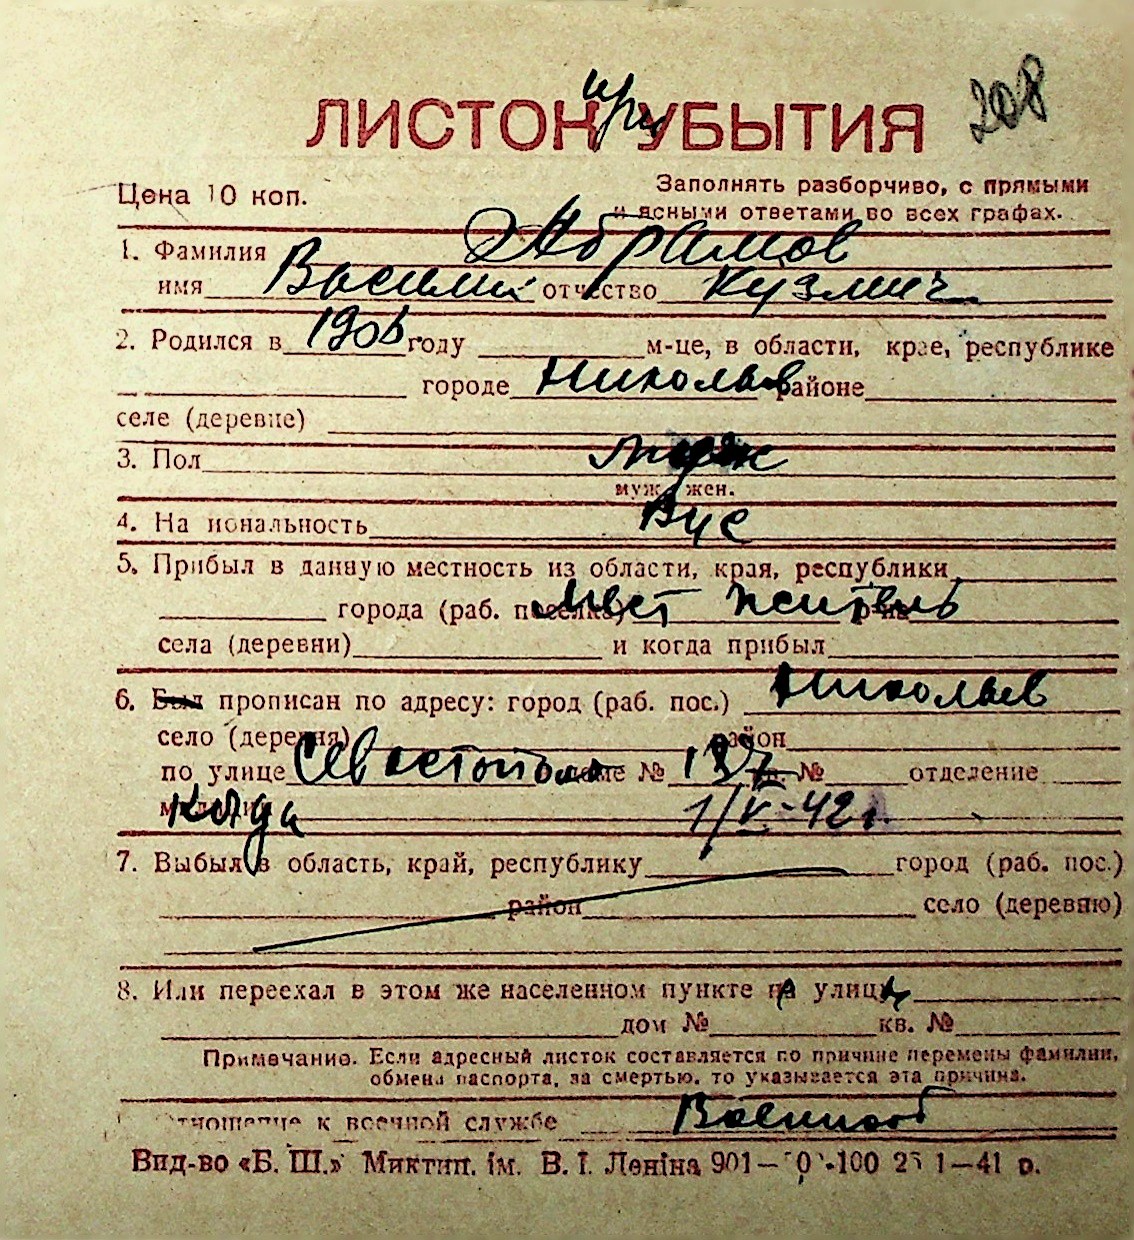 при
208
ЛИСТОК УБЫТИЯ
Цена 10 коп.
Заполнять разборчиво, с прямыми
и ясными ответами во всех графах.
1. Фамилия Абрамов
имя Василий отчество Кузмич
2. Родился в 1906 году м-це, в области, крае, республике
городе Николаев районе
селе (деревне)
3. Пол муж
муж. жен.
4. На иональность Рус
5. Прибыл в данную местность из области, края, республики
города (раб. поселка) мест житель р-на
села (деревни) и когда прибыл
6. Был прописан по адресу: город (раб. пос.) Николаев
село (деревня) район
по улице Севастополь доме № 137 кв. № отделение
милиции когда 1/V-42 г.
7. Выбыл в область, край, республику город (раб. пос.)
район село (деревню)
8. Или переехал в этом же населенном пункте на улицу
дом № кв. №
Примечание. Если адресный листок составляется по причине перемены фамилии,
обмена паспорта, за смертью, то указывается эта причина.
Отношение к военной службе Военнооб
Вид-во «Б. Ш.» Миктип. ім. В. І. Леніна 901— 0 -100 25 1—41 р.